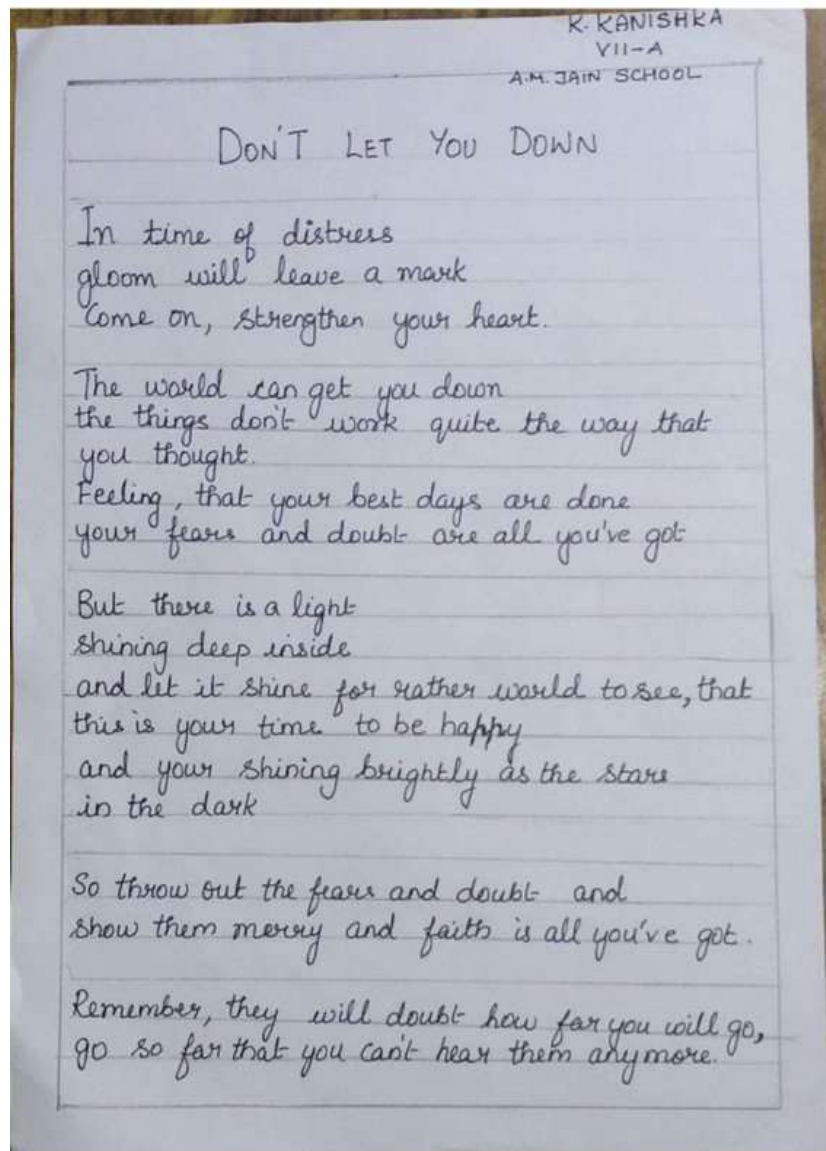 K. KANISHKA
VII-A
A.M. JAIN SCHOOL
DON'T LET YOU DOWN
In time of distress
gloom will leave a mark
Come on, strengthen your heart.
The world can get you down
the things don't work quite the way that
you thought.
Feeling, that your best days are done
your fears and doubt are all you've got
But there is a light
shining deep inside
and let it shine for rather world to see, that
this is your time to be happy
and your shining brightly as the stars
in the dark
So throw out the fears and doubt and
show them merry and faith is all you've got.
Remember, they will doubt how far you will go,
go so far that you can't hear them anymore.